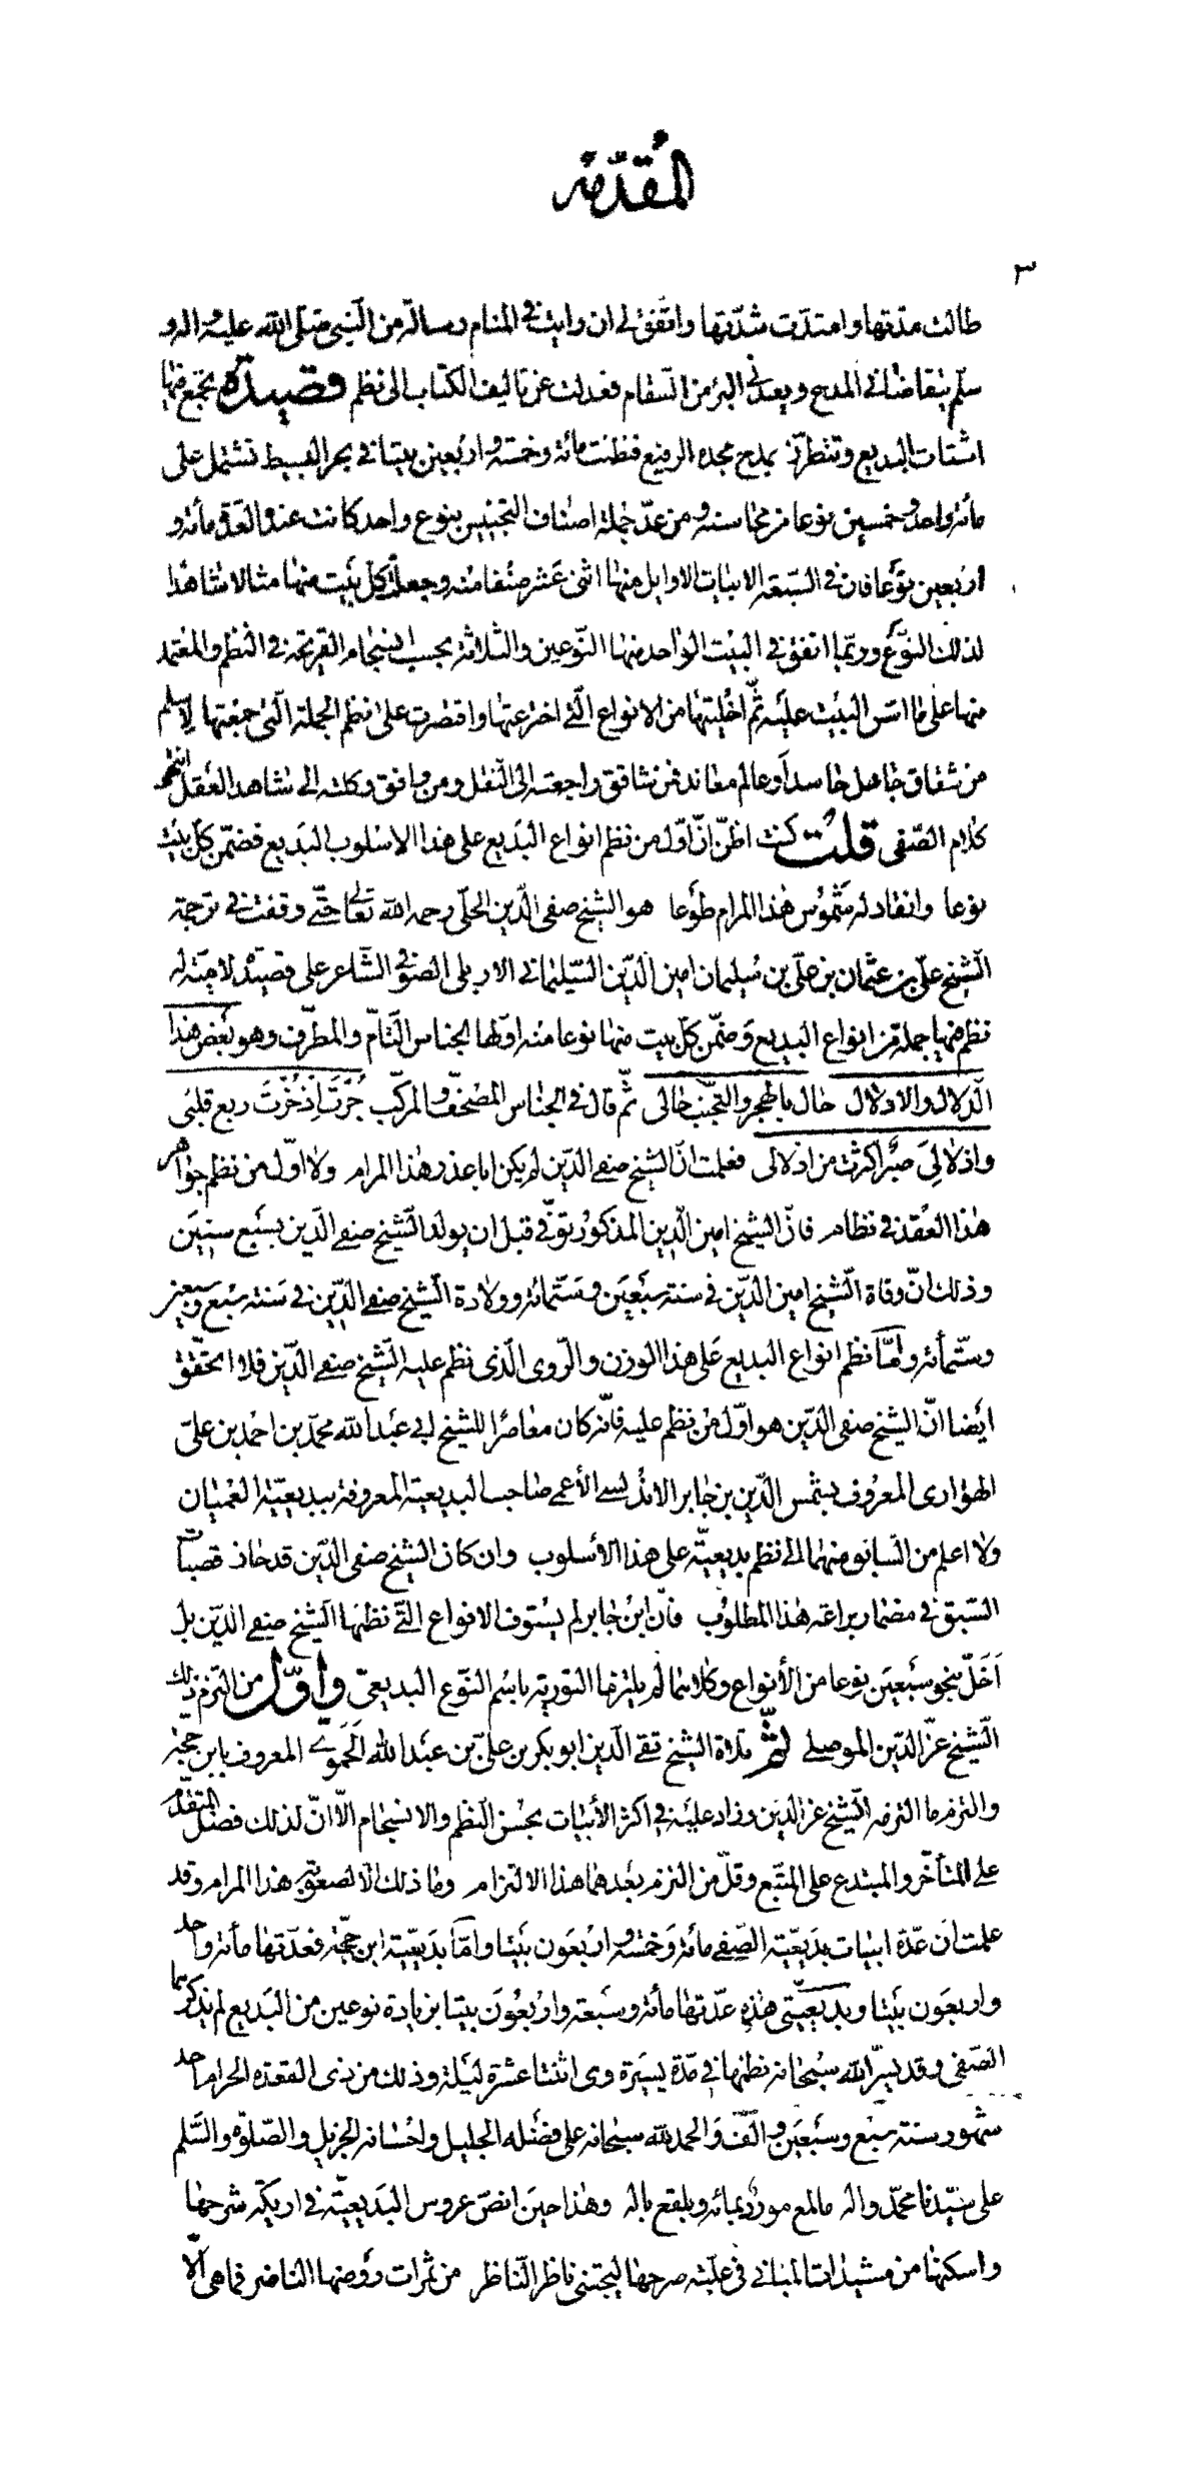 المقدمة
٣
طالت مدتها وامتدّت شدّتها واتفق لى ان رايت فى المنام رسالة من النّبى صلّى الله عليه واله و
سلم يتقاضانى المدح ويعدنى البرء من السّقام فعدلت عن تاليف الكتاب الى نظم قصيدة تجمع فيها
اشتات البديع وتتطرّز بمدح مجده الرفيع فنظمت مائة وخمسة واربعين بيتا فى بحر البسيط تشتمل على
مائة واحد وخمسين نوعا من محاسنه ومن عدّ جملة اصناف التجنيس بنوع واحد كانت عنده العدّة مائة و
اربعين نوعا فان فى السّبعة الابيات الاوايل منها اثنى عشر صنفا منه وجعلت كلّ بيت منها مثالا شاهدا
لذلك النّوع وربّما اتفق فى البيت الواحد منها النّوعين والثلاثة بحسب انسجام القريحة فى النظم والمعتمد
منها على ما اسّس البيت عليه ثمّ اخليتها من الانواع الّتى اخترعتها واقتصرت على نظم الجملة الّتى جمعتها لاسلم
من شقاق جاهل حاسد او عالم معاند فمن شاقق راجعته الى النّقل ومن وافق وكلته الى شاهد العقل انتهى
كلام الصّفى قلت كنت اظنّ انّ اوّل من نظم انواع البديع على هذا الاسلوب البديع فضمّن كلّ بيت
نوعا وانقاد له شموس هذا المرام طوعا هو الشيخ صفى الدّين الحلّى رحمه الله تعالى حتّى وقفت فى ترجمة
الشيخ علىّ بن عثمان بن علىّ بن سليمان امين الدّين السّليمانى الاربلى الصّوفى الشّاعر على قصيدة لاميّة له
نظم فيها جملة من انواع البديع وضمّن كلّ بيت منها نوعا منه اوّلها الجناس التّامّ والمطرّف وهو بعض هذا
الدّلال والادلال حال بالهجر والتجنّب حالى ثمّ قال فى الجناس المصحّف والمركّب جُرْتَ اذ حُزْتَ ربع قلبى
واذلالى صبر اكثرت من اذلالى فعلمت انّ الشيخ صفى الدّين لم يكن ابا عذر هذا المرام ولا اوّل من نظم جواهر
هذا العقد فى نظام فانّ الشيخ امين الدّين المذكور توفّى قبل ان يولد الشّيخ صفى الدّين بسبع سنين
وذلك انّ وفاة الشّيخ امين الدّين فى سنة سبعين وستّمائة وولادة الشّيخ صفى الدّين فى سنة سبع وسبعين
وستّمائة وامّا نظم انواع البديع على هذا الوزن والرّوى الّذى نظم عليه الشّيخ صفى الدّين فلا اتحقّق
ايضا انّ الشيخ صفى الدّين هو اوّل من نظم عليه فانّه كان معاصرا للشيخ ابى عبد الله محمّد بن احمد بن علىّ
الهوّارى المعروف بشمس الدّين بن جابر الاندلسى الأعمى صاحب البديعية المعروفة ببديعيّة العميان
ولا اعلم من السّابق منهما الى نظم بديعيّته على هذا الأسلوب وان كان الشيخ صفى الدّين قد حاز قصبات
السّبق فى مضمار براعة هذا المطلوب فانّ ابن جابر لم يستوف الانواع الّتى نظمها الشّيخ صفى الدّين بل
اخلّ بنحو سبعين نوعا من الأنواع وكلاهما لم يلتزما التورية باسم النّوع البديعى واوّل من التزم ذلك
الشّيخ عزّ الدّين الموصلى ثمّ تلاه الشيخ تقى الدّين ابو بكر بن علىّ بن عبد الله الحموىّ المعروف بابن حجّة
والتزم ما التزمه الشّيخ عز الدّين وزاد عليه فى اكثر الأبيات بحسن النّظم والانسجام الّا انّ لذلك فضل المتقدّم
على المتأخّر والمبتدع على المتّبع وقلّ من التزم بعدهما هذا الالتزام وما ذلك الّا لصعوبة هذا المرام وقد
علمت انّ عدّة ابيات بديعيّة الصّفى مائة وخمسة واربعون بيتا وامّا بديعيّة ابن حجّة فعدّتها مائة واحد
واربعون بيتا وبديعيّتى هذه عدّتها مائة وسبعة واربعون بيتا بزيادة نوعين من البديع لم يذكرهما
الصّفى وقد يسّر الله سبحانه نظمها فى مدّة يسيرة وى اثنتا عشرة ليلة وذلك من ذى القعدة الحرام احد
شهور سنة سبع وسبعين والف والحمد لله سبحانه على فضله الجليل واحسانه الجزيل والصّلوة والسّلم
على سيّدنا محمّد واله مالمع مورد بمائه وبلقع باله وهذا حين انصّ عروس البديعيّة فى اريكة شرحها
واسكنها من مشيدات المبانى فى عليّة صرحها ليجتنى ناظر النّاظر من ثمرات روضها النّاضر فما هى الّا